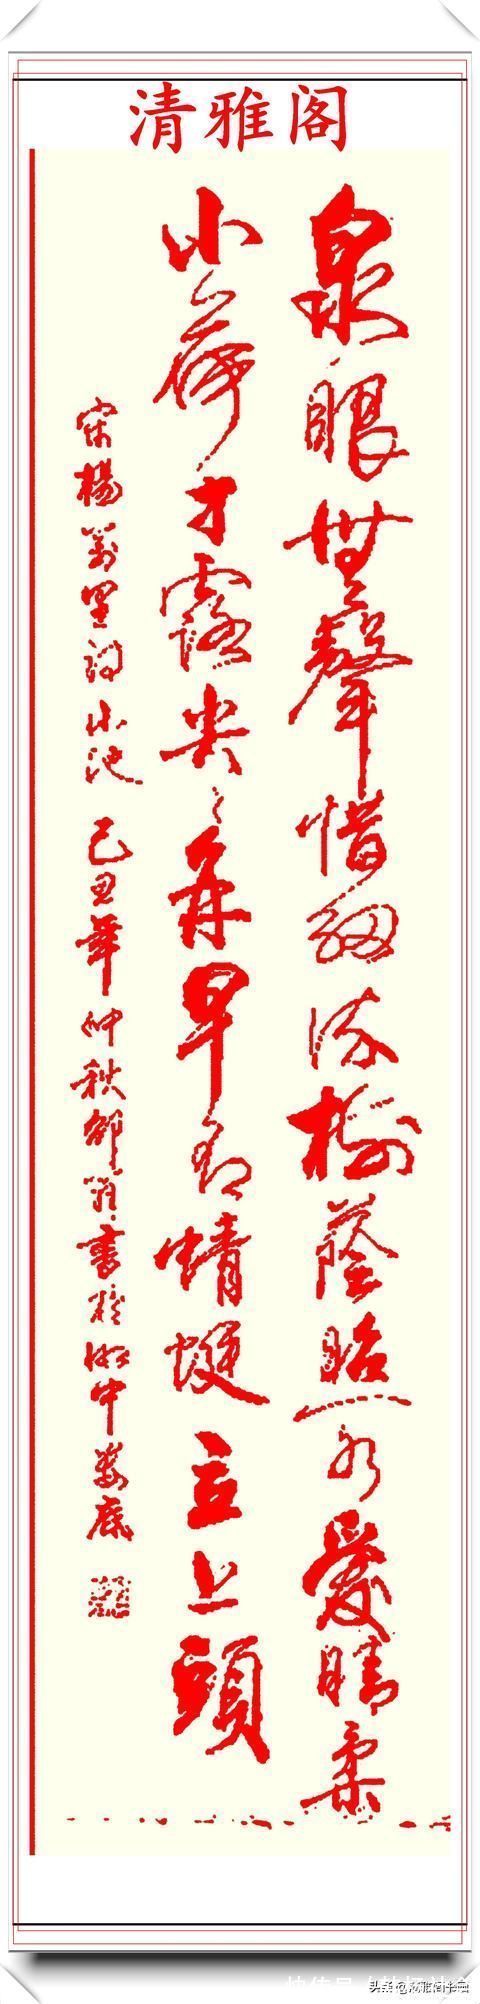 清雅阁
泉眼無聲惜細流樹蔭照水愛晴柔
小荷才露尖尖角早有蜻蜓立上頭
宋楊萬里詩小池 己丑年仲秋鄒 書於湘中婁底
头条@清雅阁书画